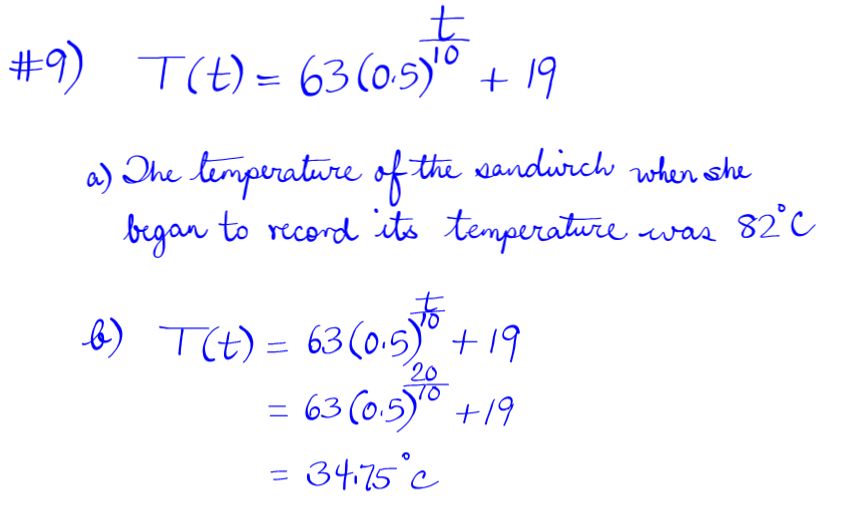 #9) T(t) = 63(0.5)^(t/10) + 19
a) The temperature of the sandwich when she
began to record its temperature was 82°C
b) T(t) = 63(0.5)^(t/10) + 19
= 63(0.5)^(20/10) + 19
= 34.75°C